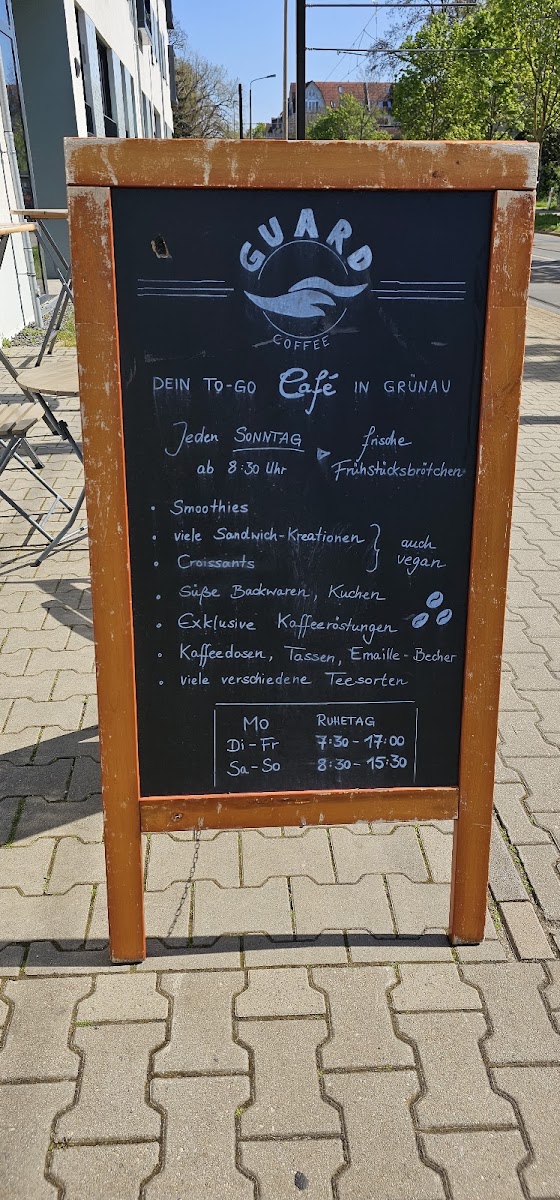 GUARD
COFFEE
DEIN TO-GO Café IN GRÜNAU
Jeden SONNTAG frische
ab 8:30 Uhr Frühstücksbrötchen
• Smoothies
• viele Sandwich-Kreationen } auch
• Croissants vegan
• Süße Backwaren, Kuchen
• Exklusive Kaffeeröstungen
• Kaffeedosen, Tassen, Emaille-Becher
• viele verschiedene Teesorten
MO RUHETAG
Di-Fr 7:30-17:00
Sa-So 8:30-15:30